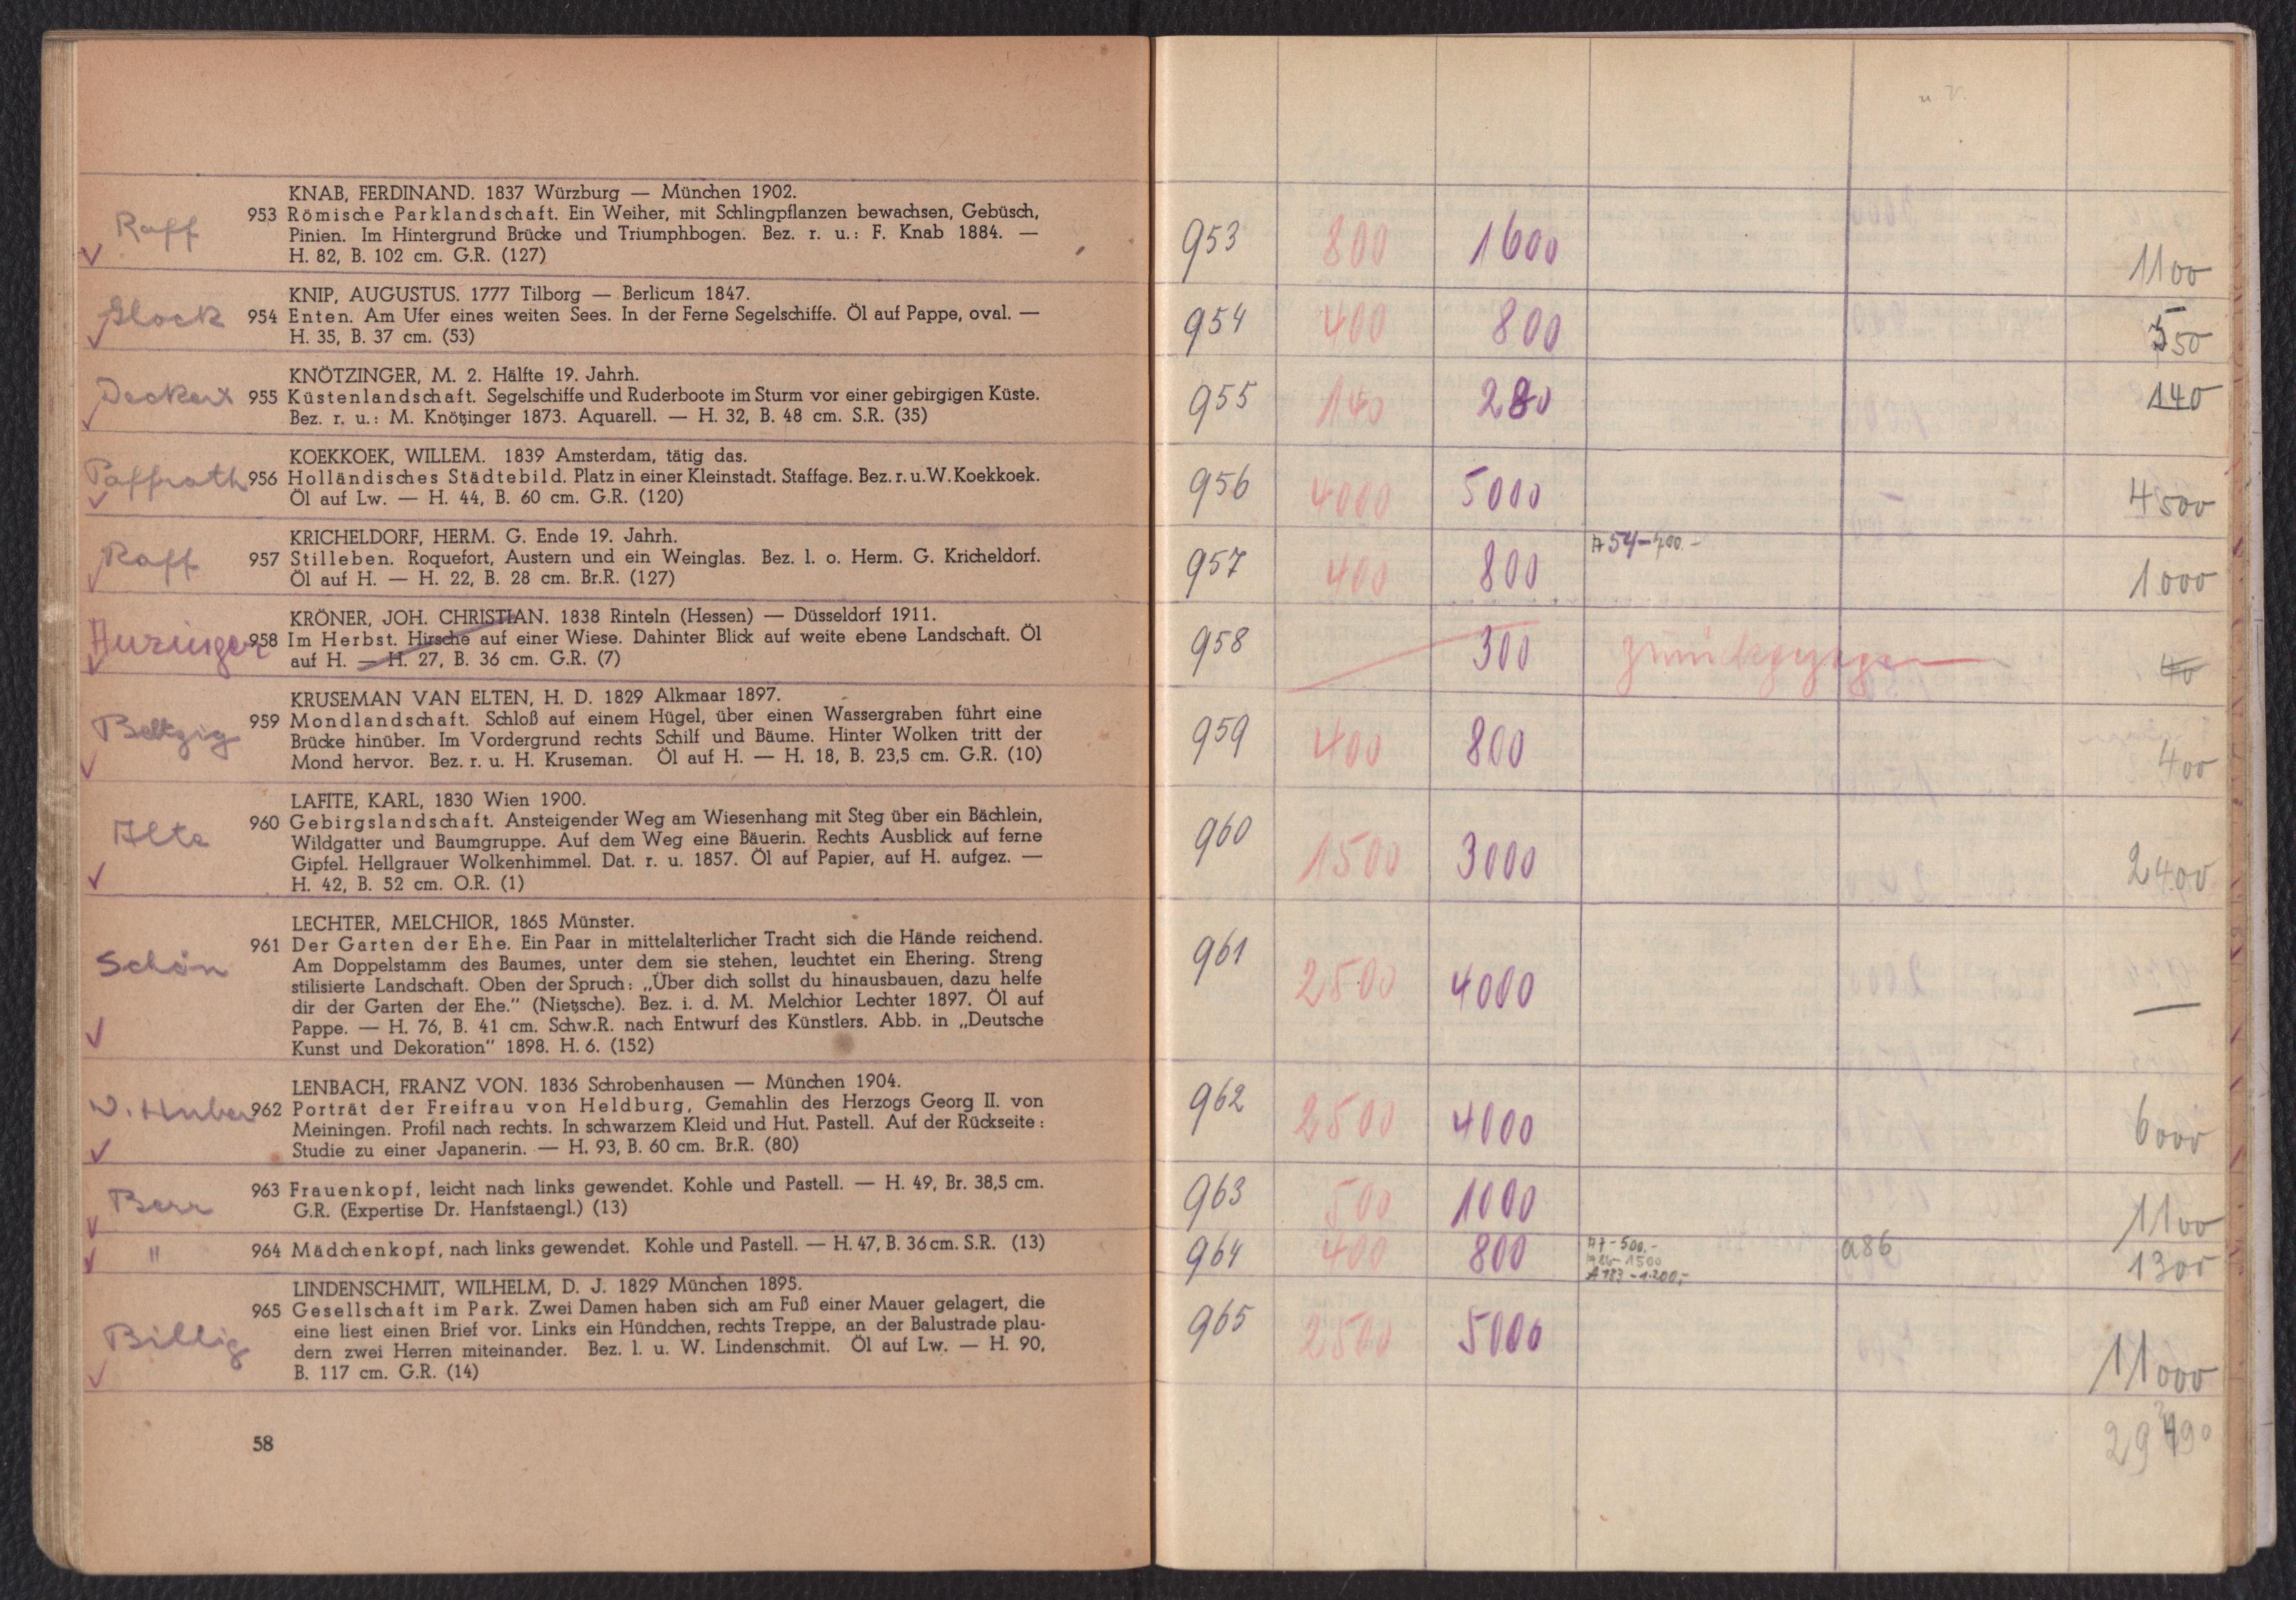 KNAB, FERDINAND. 1837 Würzburg — München 1902.
Raff 953 Römische Parklandschaft. Ein Weiher, mit Schlingpflanzen bewachsen, Gebüsch,
Pinien. Im Hintergrund Brücke und Triumphbogen. Bez. r. u.: F. Knab 1884. —
H. 82, B. 102 cm. G.R. (127)
KNIP, AUGUSTUS. 1777 Tilborg — Berlicum 1847.
Glock 954 Enten. Am Ufer eines weiten Sees. In der Ferne Segelschiffe. Öl auf Pappe, oval. —
H. 35, B. 37 cm. (53)
KNÖTZINGER, M. 2. Hälfte 19. Jahrh.
Deckert 955 Küstenlandschaft. Segelschiffe und Ruderboote im Sturm vor einer gebirgigen Küste.
Bez. r. u.: M. Knötzinger 1873. Aquarell. — H. 32, B. 48 cm. S.R. (35)
KOEKKOEK, WILLEM. 1839 Amsterdam, tätig das.
Paffrath 956 Holländisches Städtebild. Platz in einer Kleinstadt. Staffage. Bez. r. u. W. Koekkoek.
Öl auf Lw. — H. 44, B. 60 cm. G.R. (120)
KRICHELDORF, HERM. G. Ende 19. Jahrh.
Raff 957 Stilleben. Roquefort, Austern und ein Weinglas. Bez. l. o. Herm. G. Kricheldorf.
Öl auf H. — H. 22, B. 28 cm. Br.R. (127)
KRÖNER, JOH. CHRISTIAN. 1838 Rinteln (Hessen) — Düsseldorf 1911.
Auringer 958 Im Herbst. Hirsche auf einer Wiese. Dahinter Blick auf weite ebene Landschaft. Öl
auf H. — H. 27, B. 36 cm. G.R. (7)
KRUSEMAN VAN ELTEN, H. D. 1829 Alkmaar 1897.
Beltzig 959 Mondlandschaft. Schloß auf einem Hügel, über einen Wassergraben führt eine
Brücke hinüber. Im Vordergrund rechts Schilf und Bäume. Hinter Wolken tritt der
Mond hervor. Bez. r. u. H. Kruseman. Öl auf H. — H. 18, B. 23,5 cm. G.R. (10)
LAFITE, KARL, 1830 Wien 1900.
960 Gebirgslandschaft. Ansteigender Weg am Wiesenhang mit Steg über ein Bächlein,
Wildgatter und Baumgruppe. Auf dem Weg eine Bäuerin. Rechts Ausblick auf ferne
Gipfel. Hellgrauer Wolkenhimmel. Dat. r. u. 1857. Öl auf Papier, auf H. aufgez. —
H. 42, B. 52 cm. O.R. (1)
LECHTER, MELCHIOR, 1865 Münster.
Schön 961 Der Garten der Ehe. Ein Paar in mittelalterlicher Tracht sich die Hände reichend.
Am Doppelstamm des Baumes, unter dem sie stehen, leuchtet ein Ehering. Streng
stilisierte Landschaft. Oben der Spruch: „Über dich sollst du hinausbauen, dazu helfe
dir der Garten der Ehe.“ (Nietzsche). Bez. i. d. M. Melchior Lechter 1897. Öl auf
Pappe. — H. 76, B. 41 cm. Schw.R. nach Entwurf des Künstlers. Abb. in „Deutsche
Kunst und Dekoration“ 1898. H. 6. (152)
LENBACH, FRANZ VON. 1836 Schrobenhausen — München 1904.
Huber 962 Porträt der Freifrau von Heldburg, Gemahlin des Herzogs Georg II. von
Meiningen. Profil nach rechts. In schwarzem Kleid und Hut. Pastell. Auf der Rückseite:
Studie zu einer Japanerin. — H. 93, B. 60 cm. Br.R. (80)
963 Frauenkopf, leicht nach links gewendet. Kohle und Pastell. — H. 49, Br. 38,5 cm.
G.R. (Expertise Dr. Hanfstaengl.) (13)
" 964 Mädchenkopf, nach links gewendet. Kohle und Pastell. — H. 47, B. 36 cm. S.R. (13)
LINDENSCHMIT, WILHELM, D. J. 1829 München 1895.
Billig 965 Gesellschaft im Park. Zwei Damen haben sich am Fuß einer Mauer gelagert, die
eine liest einen Brief vor. Links ein Hündchen, rechts Treppe, an der Balustrade plau-
dern zwei Herren miteinander. Bez. l. u. W. Lindenschmit. Öl auf Lw. — H. 90,
B. 117 cm. G.R. (14)
58
953 800 1600 1100
954 400 800 550
955 140 280 140
956 4000 5000 4500
957 400 800 A 54-700.- 1000
958 300 zurückgezogen 40
959 400 800 400
960 1500 3000 2400
961 2500 4000 —
962 2500 4000 6000
963 500 1000 1100
964 400 800 A7-500.- a86 1300
A26-1500
A183-1200,-
965 2500 5000 11000